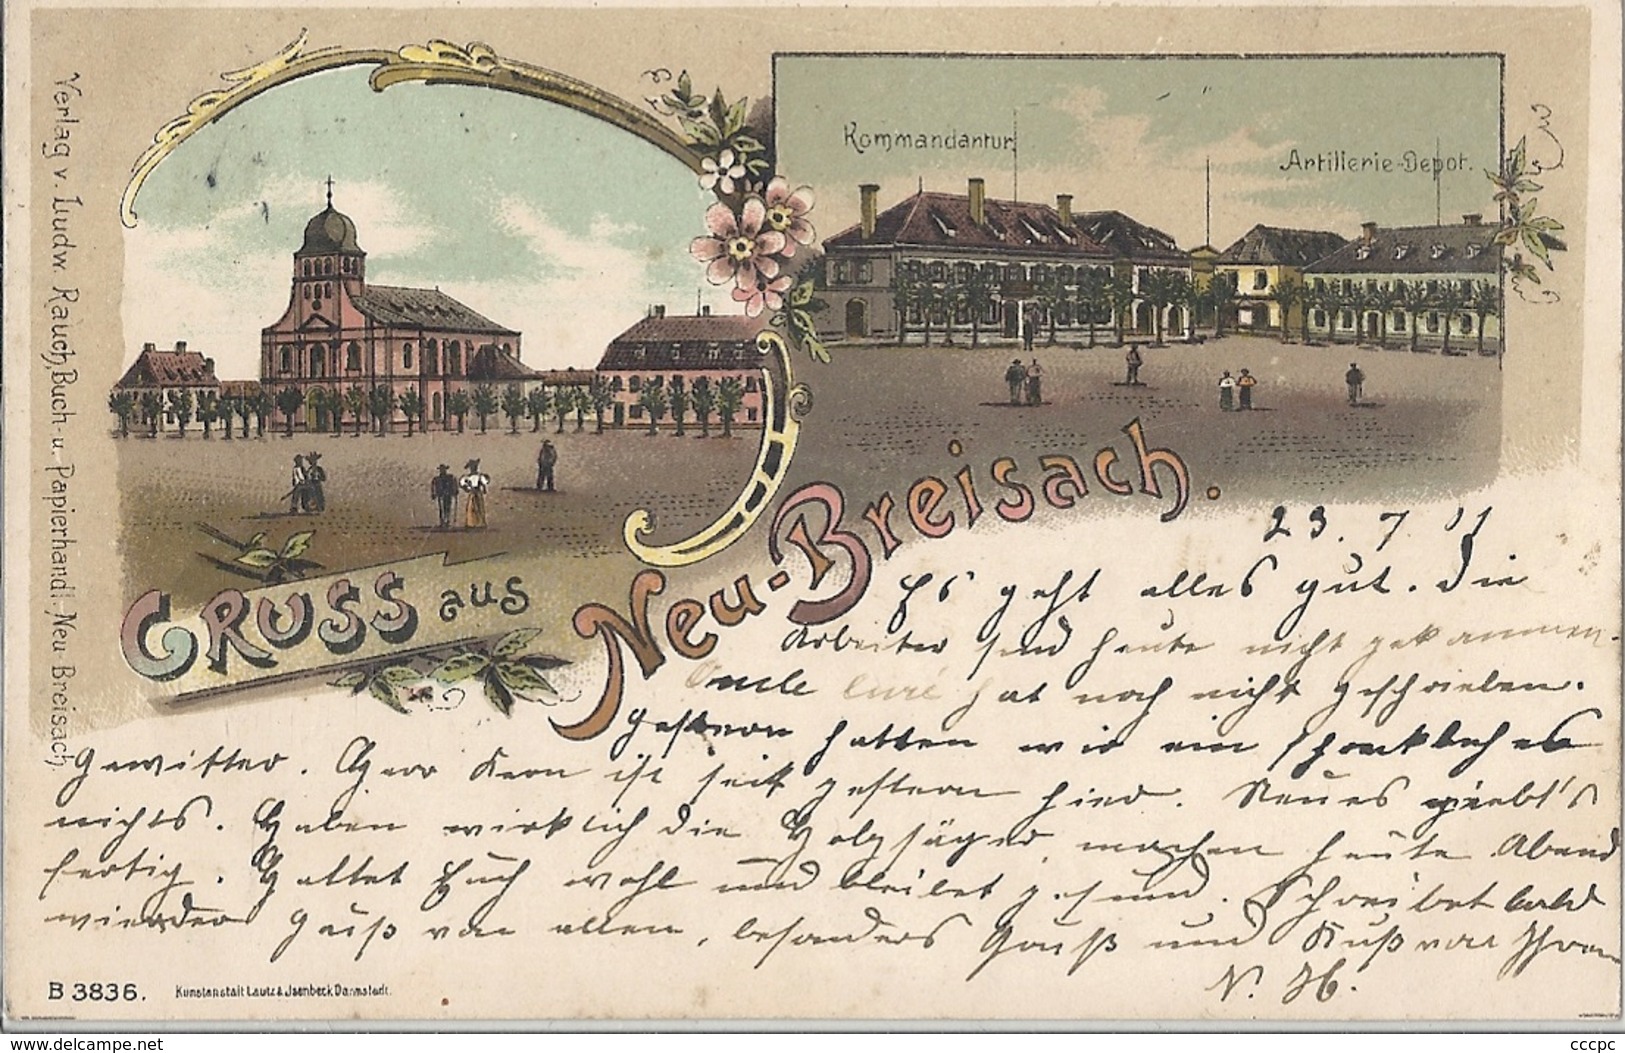 Verlag v. Ludw. Rauch, Buch- u. Papierhandl. Neu-Breisach.
Kommandantur
Artillerie-Depot.
GRUSS aus
Neu-Breisach.
23. 7. 01
Es geht alles gut. Die
Arbeiter sind heute nicht gekommen.
Oncle Curé hat noch nicht geschrieben.
Gestern hatten wir ein schreckliches
Gewitter. Herr Kern ist seit gestern hier. Neues giebt's
nichts. Haben wirklich die Holzsäger, machen heute Abend
fertig. Haltet Euch wohl und bleibet gesund. Schreibet bald
wieder Gruß von allen, besonders Gruß und Kuß von Ihren
N. H.
B 3836.
Kunstanstalt Lautz & Isenbeck Darmstadt.
www.delcampe.net
cccpc